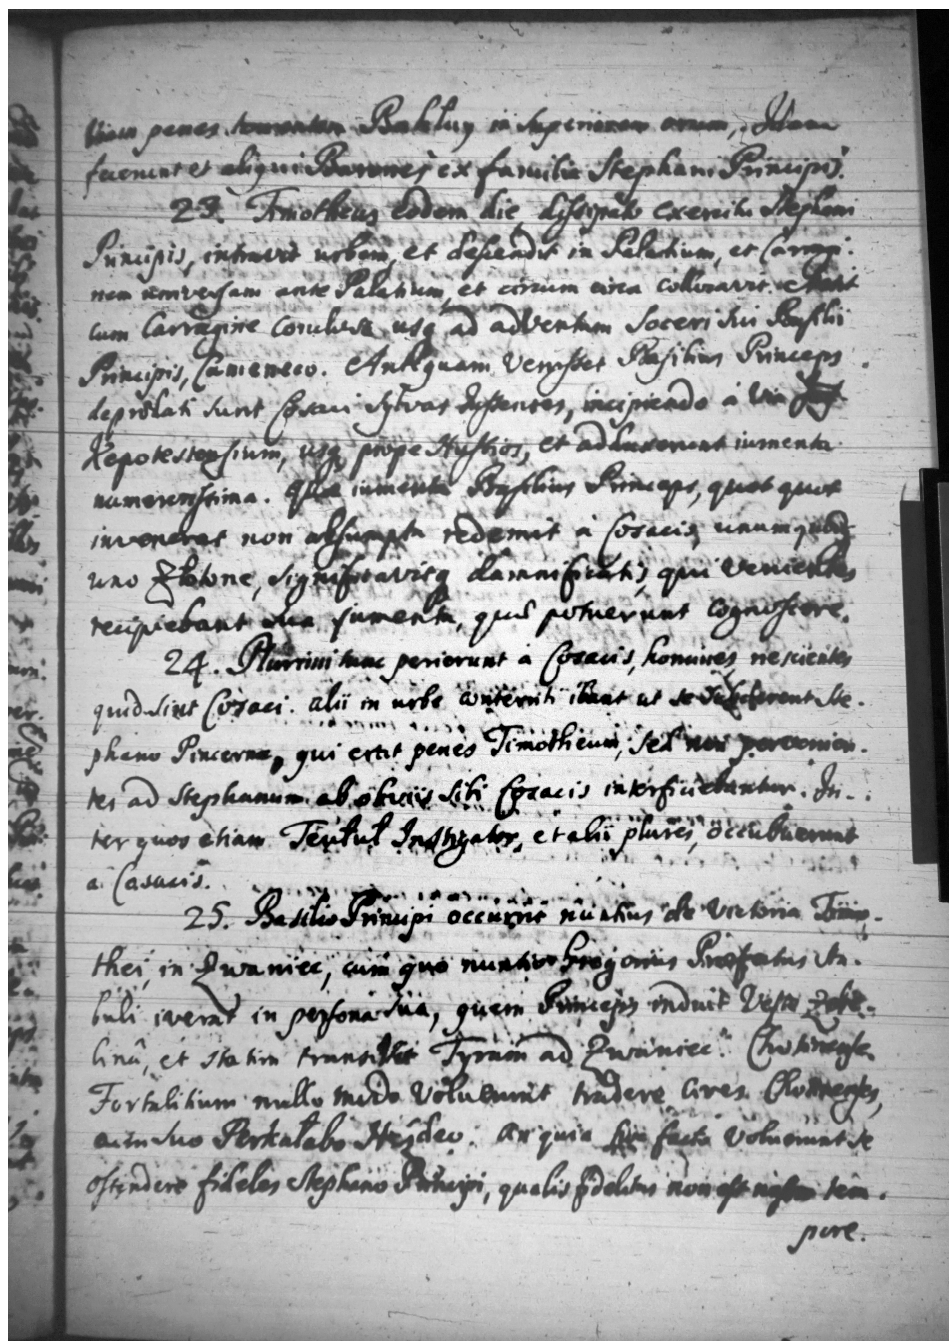 viam penes torrentem Bahluy in superiorem oram, Idem
fecerunt et aliqui Barones ex familia Stephani Principis.
23. Timotheus eodem die, dissipato exercitu Stephani
Principis, intravit urbem, et descendit in Palatium, et Carragi-
nem universam ante Palatium, et circum circa collocavit.
cum Carragine usq ad adventum Soceri sui Basilii
Principis, Cameneco. Antequam venisset Basilius Princeps
deprædati sunt Cosaci sylvas incipiendo à via
usq prope Hustios, et adduxerunt iumenta
numerosissima. Quæ iumenta Basilius Princeps, quot quot
invenerat non absumpta redemit à Cosacis, unumquodq
uno Zlotone, significavitq damnificatis, qui venientes
recipiebant sua jumenta, quæ potuerunt cognoscere.
24. Plurimi tunc perierunt à Cosacis, homines nescientes
quid sint Cosaci. alii in urbe conterriti ibant ut se Ste-
phano Pincernæ, qui erat penes Timotheum, sed non pervenien-
tes ad Stephanum ab obviis sibi Cosacis interficiebantur. In-
ter quos etiam Teutul Instigator, et alii plures, occubuerunt
a Casacis.
25. Basilio Principi occurrit nuntius de victoria Timo-
thei, in Zwaniec, cum quo nuntio Gregorius Præfectus Sta-
buli iverat in persona sua, quem Princeps induit veste Zobel-
linâ, et statim transivit Tyram ad Zwaniec. Chotinense
Fortalitium nullo modo voluerunt tradere cives Chotinenses,
cum suo Perkalabo Hejdeo. quia facto voluerunt se
ostendere fideles Stephano Principi, qualis fidelitas non est nostro tem-
pore.